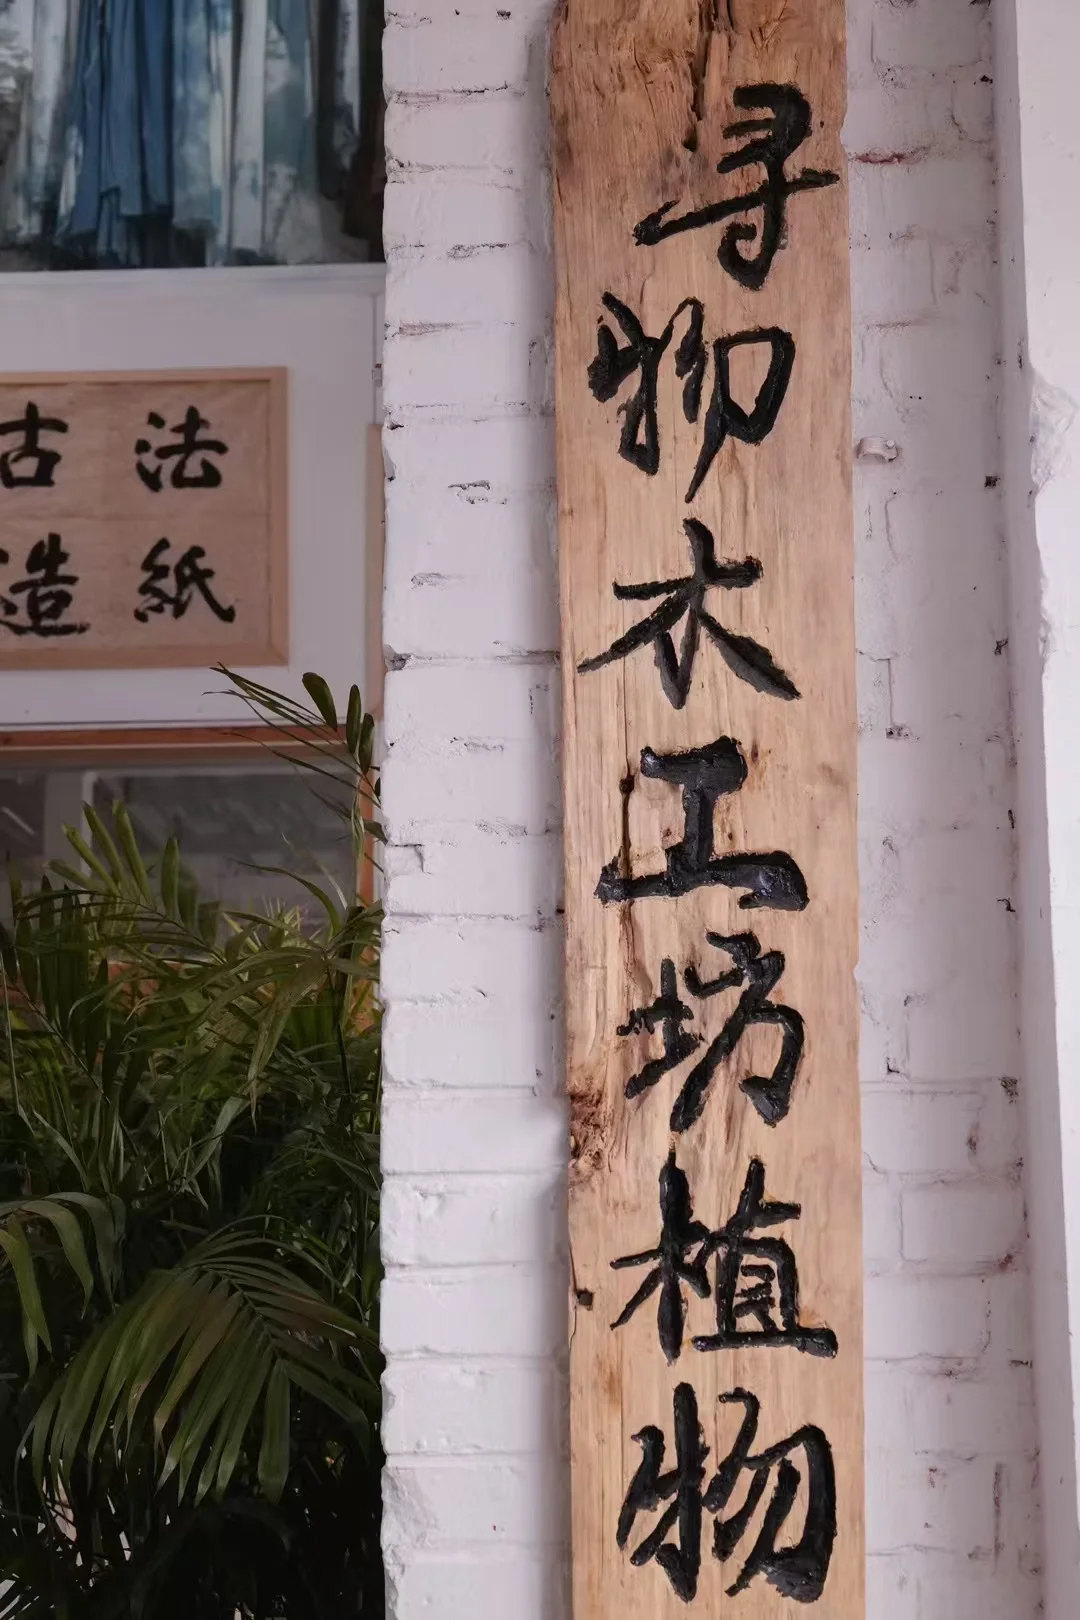 寻物木工坊植物
古法
造紙